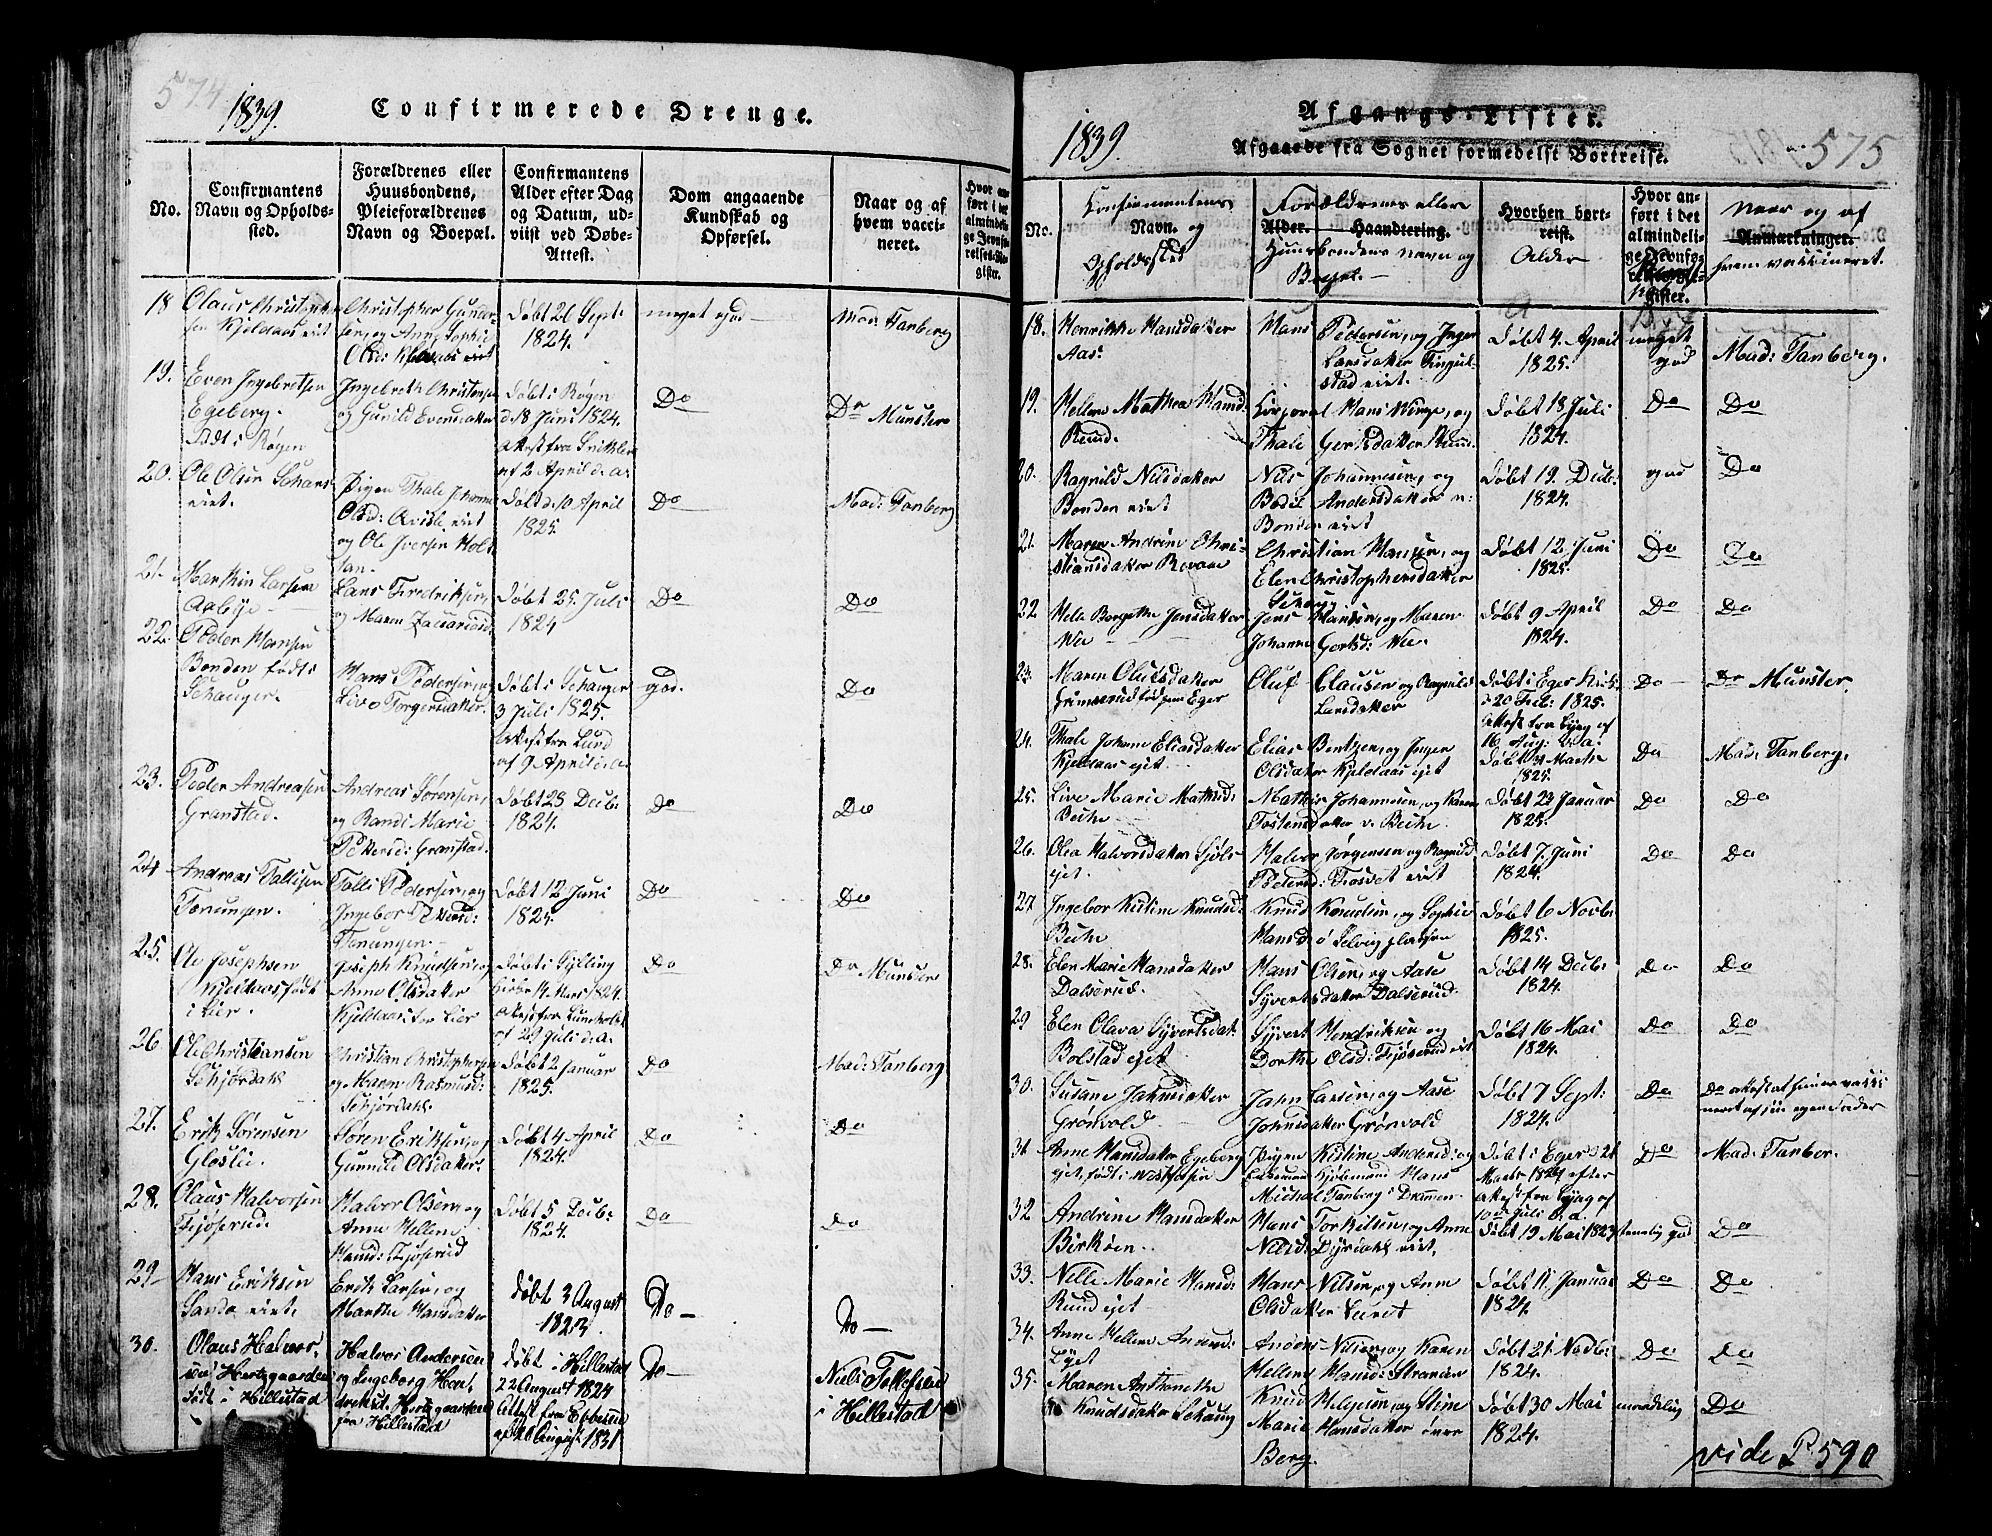 574
1839.
Confirmerede Drenge.
No.
Confirmantens
Navn og Opholds-
sted.
Forældrenes eller
Huusbondens,
Pleieforældrenes
Navn og Boepæl.
Confirmantens
Alder efter Dag
og Datum, ud-
viist ved Døbe-
Attest.
Dom angaaende
Kundskab og
Opførsel.
Naar og af
hvem vacci-
neret.
Hvor an-
ført i det
almindeli-
ge Jevnfø-
relses-Re-
gister.
18
Olaus Christoph
sen Kjeldaas eiet
Christopher Gunder-
sen, og Anne Sophie
Olsd:
Døbt 26 Sept:
1824.
meget god
Mad: Tanberg
19.
Even Ingebretsen
Egeberg.
Født i Røgen
Ingebreth Christensen
og Gunild Evensdatter
Døbt i Røgen
d. 18 Juni 1824.
af 2 April d. a.
Do
Dr Munster
20.
Ole Olsen Schans
eiet.
Pigen Thale Johanne
Olsd:
og Ole Iversen Holt
Døbt d. 10 April
1825
Do
Mad: Tanberg
21.
Larsen
Aabye
Lars Fredriksen,
og Maren Zacariasd:
Døbt 25 Juli
1824
Do
Do
22.
Peder Hansen
Bonden født i
Schauger.
Hans Pedersen, og
Live Torgersdatter.
Døbt i Schauger
3 Juli 1825.
Attest fra Lund
af 9 April d. a.
god.
Do
23.
Peder Andreasen
Granstad.
Andreas Sørensen,
og Randi Marie
Pettersd: Granstad.
Døbt 25 Decb:
1824.
Do
Do
24
Andreas Tollisen
Tonungen.
Tolli Pedersen, og
Ingebor
Tonungen.
Døbt 12 Juni
1825.
Do
Do
25.
Ole Josephsen
Kjeldaas, født
i Lier.
Joseph Knudsen, og
Anne Olsdatter
Kjeldaas, før Lier
Døbt i Sylling
Kirke 14 Mars 1824.
af 29 Juli d. a.
Do
Dr Munster
26.
Ole Christiansen
Schjørdahl
Christian Christophersen
og Maren Rasmusd:
Schjørdahl.
Døbt 2 Januar
1825.
Do
Mad: Tanberg
27.
Erik Sørensen
Gloslie.
Søren Eriksen, og
Gunnild Olsdatter.
Døbt 4 April
1824.
Do
Do
28.
Olaus Halvorsen
Fjøserud.
Halvor Olsen, og
Anne Hellene
Hansd: Fjøserud
Døbt 5 Decb:
1824.
Do
Do
29
Hans Eriksen
Sando eiet.
Erik Larsen, og
Marthe Hansdatter
Døbt 3 August
1823
Do
Do
30.
Olaus Halvor-
sen Hertsgaarden
født i Hillestad
Halvor Andersen
og Ingeborg Hen-
driksd. Hertsgaarden
fra Hillestad
Døbt i Hillestad
22 August 1824
Attest fra Ebbesen
af 28 August 1831
Do
Niels Tollefsen
i Hillestad
1839.
Afgangs-Lister.
575
Afgaaede fra Sognet formedelst Bortreise.
No.
Konfirmantens
Navn. og
Opholdssted
Forældrenes eller
Alder. Haandtering.
Huusbondens navn og
Bopæl.
Hvorhen bort-
reist.
Alder
Hvor an-
ført i det
almindeli-
ge Jevnfø-
gister.
Naar og af
Anmærkninger.
hvem vaccineret.
18.
Henrikke Hansdatter
Aas.
Hans Pedersen, og Inger
Larsdatter Ringul-
stad eiet.
Døbt 4. April
1825.
meget
god
Mad: Tanberg.
19.
Hellene Mathea Hansd:
Ruud.
Korporal Hans Winge, og
Thale
Døbt 18 Juli
1824.
Do
Do
20.
Ragnild Nilsdatter
Bonden eiet
Nils Johannesen, og
Bodil Andersdatter
Bonden eiet
Døbt 19. Decb:
1824.
god
Do
21.
Maren Andrine Chri-
stiansdatter Revaae
Christian Hansen, og
Elen Christophersdatter
Døbt 12 Juni
1825.
Do
Do
22
Hela Borgithe Jensdatter
Wee
Jens Hansen, og Maren
Johanne Gertsd: Wee
Døbt 9 April
1824.
Do
Do
23.
Maren Olufsdatter
Grimsrud født paa Eger
Oluf Clausen og Ragnild
Larsdatter
Døbt i Eger Kirke
d 20 Feb: 1825.
Attest fra Bygg af
16 Aug: d. a.
Do
Dr Munster.
24.
Thale Johanne Eliasdatter
Kjeldaas eiet.
Elias Bentzen, og Inger
Olsdatter Kjeldaas eiet
Døbt 31 Marts
1825.
Do
Mad: Tanberg.
25.
Live Marie Mathisd:
Beihe
Mathis Johannesen, og Karen
Tostensdatter v. Beihe
Døbt 23 Januar
1825.
Do
Do
26.
Olea Halvorsdatter Sjøls
eiet.
Halvor Jørgensen og Ragnild
Pedersd: Fosvet eiet
Døbt 7. Juni
1824.
Do
Do
27
Ingebor Kistine Knudsd:
Beihe
Knud Knudsen, og Sophie
Hansd:
Døbt 6 Novb:
1825.
28.
Elen Marie Hansdatter
Dalserud.
Hans Olsen, og Aase
Syvertsdatter Dalserud.
Døbt 14 Decb:
1824.
Do
Do
29
Elen Olava Syvertsdat:
Bolstad eiet
Syvert Hendriksen og
Dorthe Olsd: Fjøserud eiet
Døbt 16 Mai
1824.
Do
Do
30.
Susane Jahnsdatter
Grønvold
Jahn Larsen, og Aase
Johnsdatter Grønvold
Døbt 7 Sept:
1824.
Do
Do attest at hun er vacci
neret af sin egen Fader
31
Anne Hansdatter Egeberg
eiet, født i Westfossen
Pigen Kistine Andersd: og
Hans
Michal Tanberg i Drammen.
Døbt i Eger d 21
Marts 1824 efter
attest fra Bygg af
10de Juli d. a.
Do
Mad: Tanber.
32
Andrine Hansdatter
Birkøen.
Hans Torkilsen, og Anne
Nilsd: Dyrdahl eiet.
Døbt 19 Mai 1823
temelig god
Do
33.
Nelle Marie Hansd:
Ruud eiet
Hans Nilsen, og Anne
Olsdatter
Døbt 11 Januar
1824.
Do
Do
34.
Anne Hellene Andersd:
Eiet
Anders Nilsen, og Karen
Hellene Hansd: Stranden
Døbt 21 Novb:
1824.
Do
Do
35.
Maren Anthonethe
Knudsdatter Schoug
Knud Helgesen, og Stine
Marie Hansdatter øvre
Berg.
Døbt 30 Mai
1824.
maadelig
Do
vide P. 590